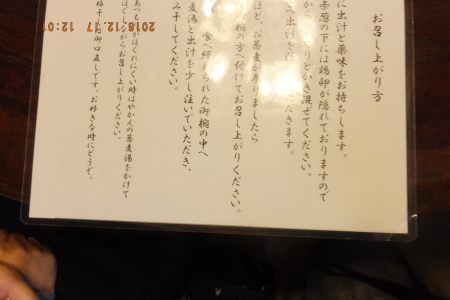 お召し上がり方
に出汁と薬味をお持ちします。
条葱の下には鶏卵が隠れておりますので
からりとかき混ぜてください。
出汁を
ほど、お蕎麦が参りましたら
椀の方へ付けてお召し上がりください。
食べ終られた御椀の中へ
麦湯と出汁を少し注いでいただき、
み干してください。
あつもりがほぐれにくい時はやかんの蕎麦湯をかけて
ほぐしながらお召し上がりください。
梅干しは御口直しです。お好きな時にどうぞ。
2018/12/17 12:0